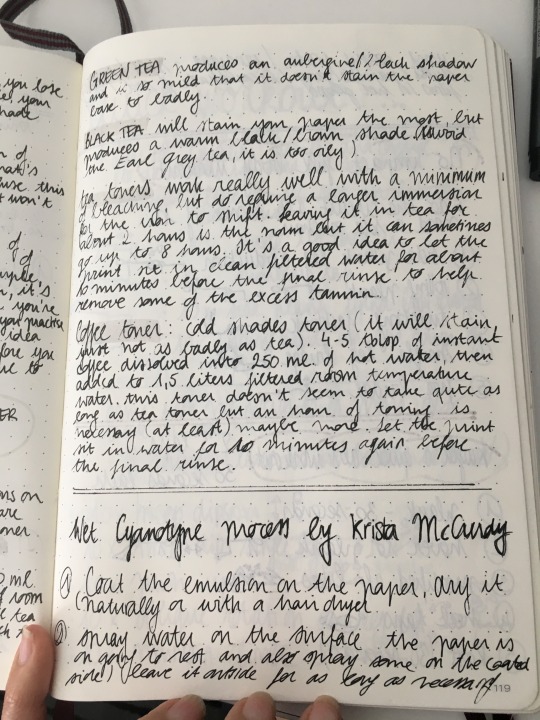 you lose
GREEN TEA produces an aubergine/black shadow
and is so mild that it doesn't stain the paper
base to badly.
BLACK TEA will stain your paper the most, but
produces a warm black/brown shade. (Avoid
Earl grey tea, it is too oily)
tea toners work really well with a minimum
of bleaching, but do require a longer immersion
for the iron to shift. leaving it in tea for
about 2 hours is the norm but it can sometimes
go up to 8 hours. It's a good idea to let the
print sit in clean filtered water for about
10 minutes before the final rinse to help
remove some of the excess tannin.
Coffee toner: cold shades toner (it will stain,
just not as badly as tea). 4-5 tbsp of instant
coffee dissolved into 250 ml. of hot water, then
added to 1,5 liters filtered room temperature
water. this toner doesn't seem to take quite as
long as tea toner but an hour of toning is
necessary (at least) maybe more. Let the print
sit in water for 10 minutes again before
the final rinse.
Wet Cyanotype process by Krista McCurdy
① Coat the emulsion on the paper, dry it
(naturally or with a hair dryer
② spray water on the surface the paper is
on going to rest and also spray some on the coated
side) leave it outside for as long as necessary
119